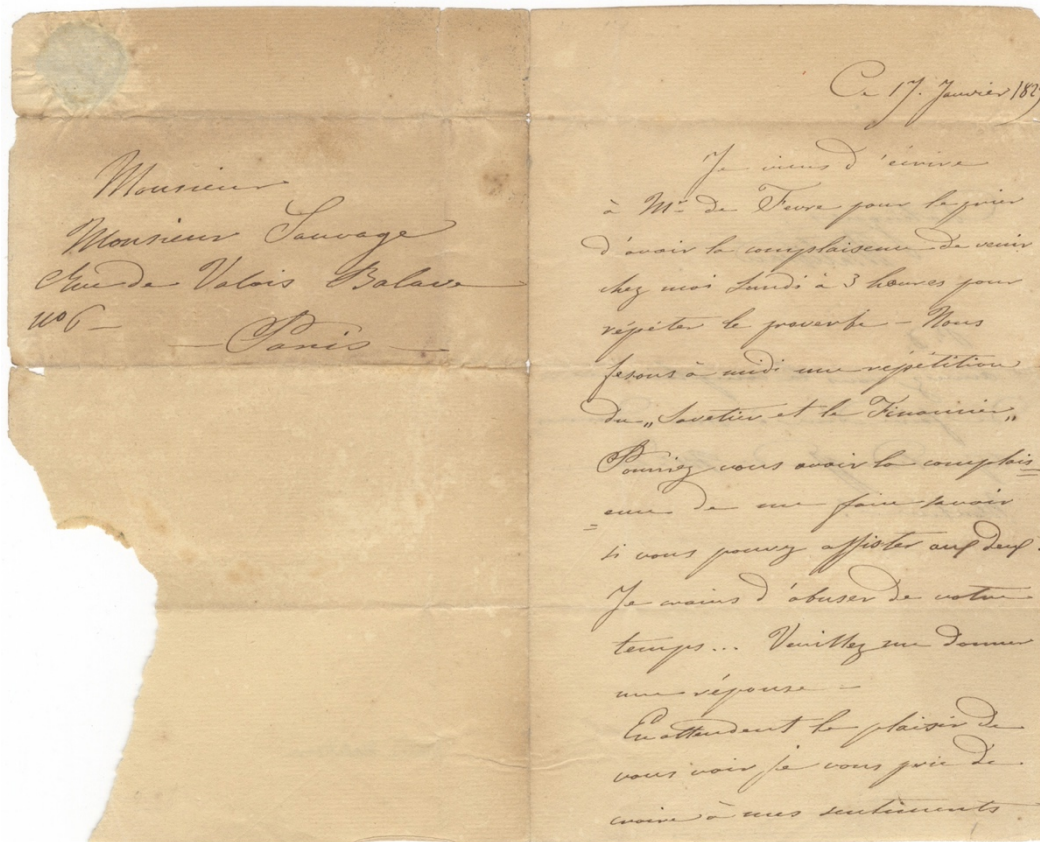 Monsieur
Monsieur Sauvage
Rue de Valois Balave
no 6 —
— Paris —
Ce 17. Janvier 182
Je viens d'écrire
à Mr. de Fevre pour le prier
d'avoir la complaisence de venir
chez moi Lundi à 3 heures pour
répéter le proverbe — Nous
fesons à midi une répétition
du „Savetier et le Financier„
Pourriez vous avoir la complais=
=ence de me faire savoir
si vous pouvez assister aux deux.
Je crains d'abuser de votre
temps... Veuillez me donner
une réponse —
En attendent le plaisir de
vous voir je vous prie de
croire à mes sentiments